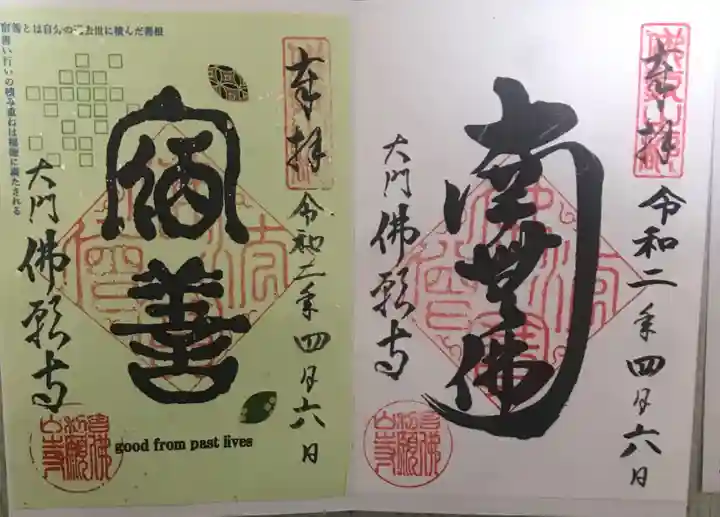 奉拝
令和二年四月六日
宿善
大門佛願寺
宿善とは自分の過去世に積んだ善根
善い行いの積み重ねは
good from past lives
奉拝
令和二年四月六日
南無佛
大門佛願寺